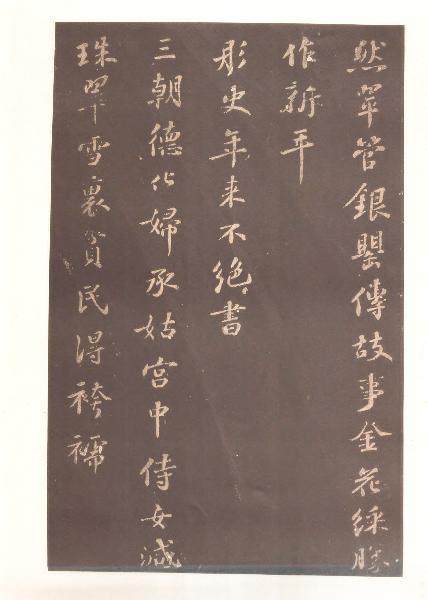 然翠管銀罌傳故事金花綵勝
作新年
彤史年來不絕書
三朝德化婦承姑宮中侍女減
珠翠雪裏貧民得袴襦